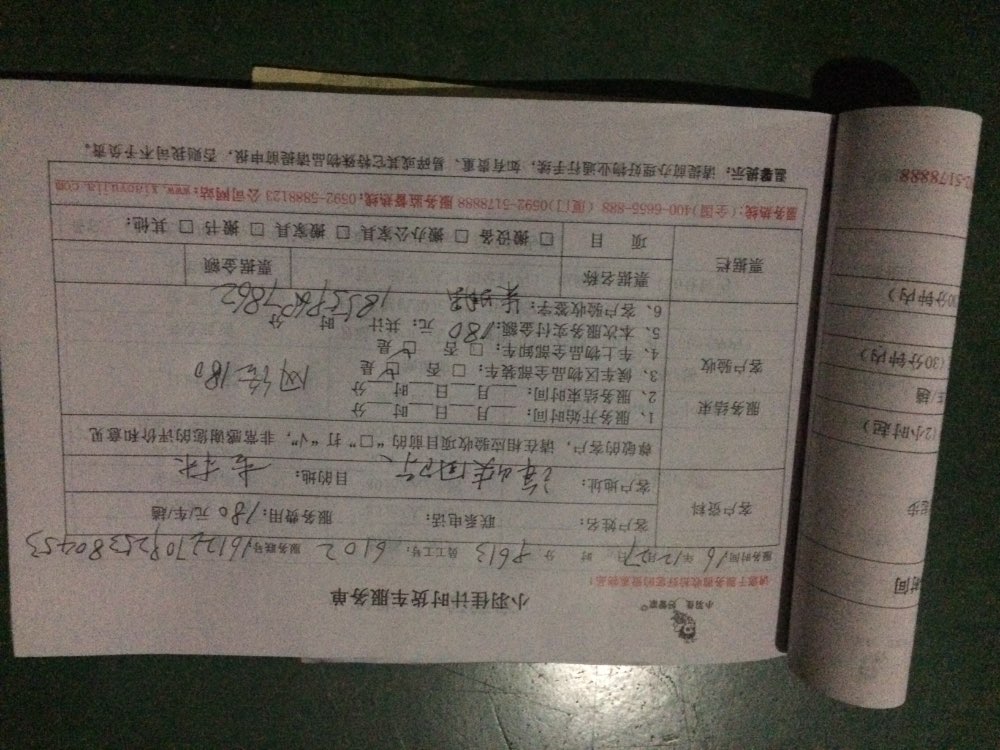 小羽佳计时货车服务单
小羽佳 好管家
服务时间: 16年12月27日 时 分 8613 员工工号: 6102 服务账号: 16122708253380453
客户资料
客户姓名: 联系电话: 服务费用: 180元/车/趟
客户地址: 目的地:
尊敬的客户,请在相应验收项目前的“□”打“√”,非常感谢您的评价和意见
服务结束
客户验收
1、服务开始时间: 月 日 时 分
2、服务结束时间: 月 日 时 分
3、候车区物品全部装车: □ 否 □ 是
网络180
4、车上物品全部卸车: □ 否 □ 是
5、本次服务实付金额: 180 元; 共计: 时 分
6、客户验收签字:
票据栏
票据名称 票据金额
项 目 □ 搬设备 □ 搬办公家具 □ 搬家具 □ 搬书 □ 其他:
服务热线:(全国)400-6655-888 (厦门)0592-5178888 服务监督热线:0592-5888123 公司网站:www.xiaoyujia.com
温馨提示:请提前办理好物业通行手续,如有贵重、易碎或其它特殊物品请提前申报,否则我司不予负责。
时间
(2小时起)
(30分钟内)